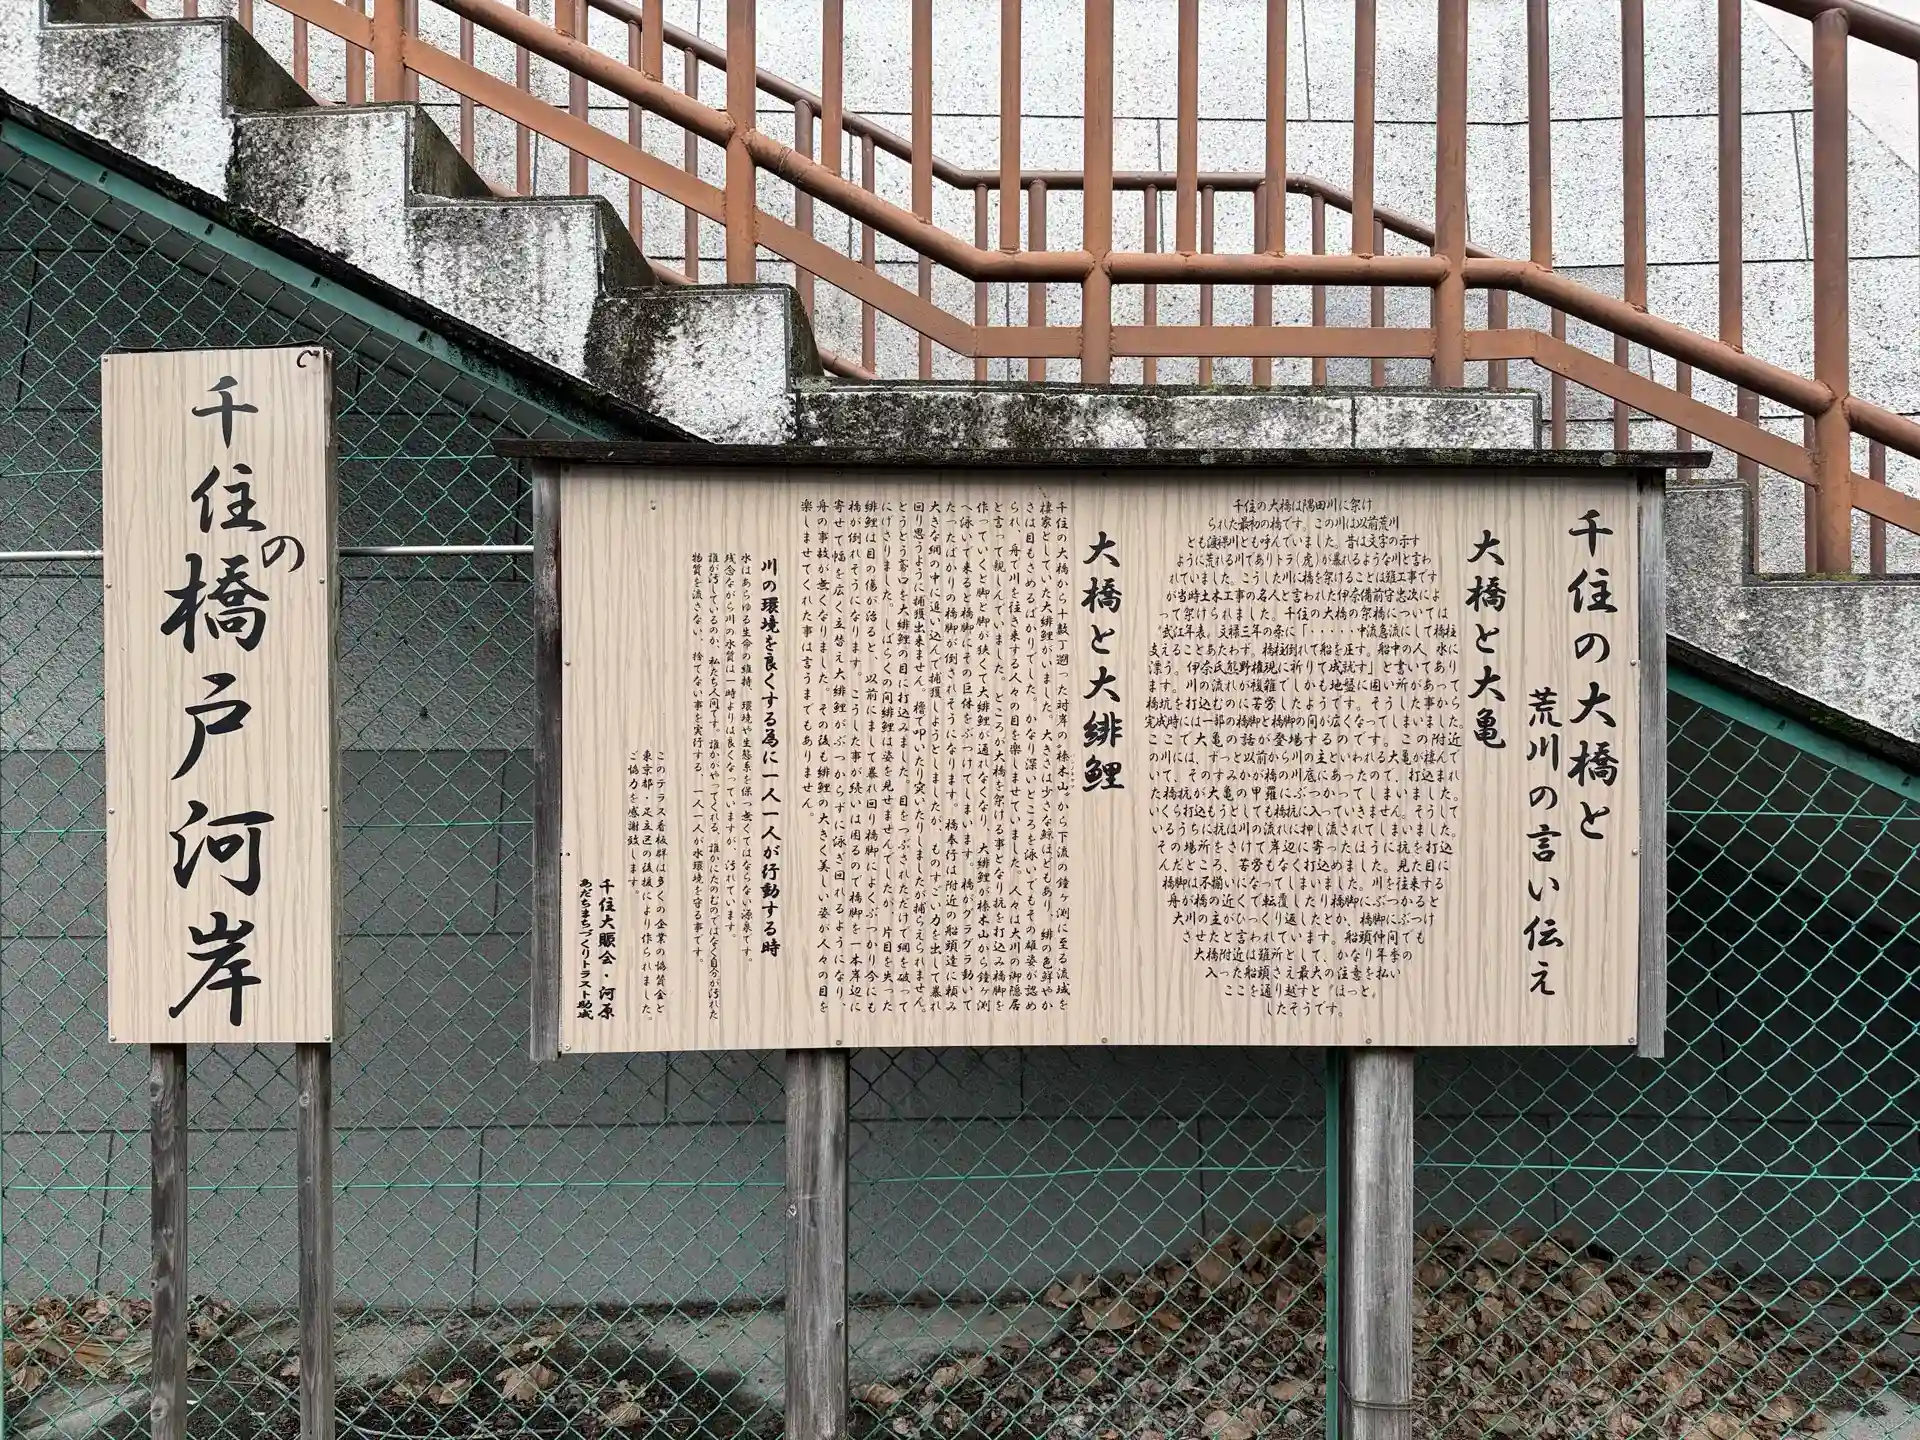 千住の大橋と
荒川の言い伝え
大橋と大亀
千住の大橋は隅田川に架け
られた最初の橋です。この川は以前荒川
とも渡裸川とも呼んでいました。昔は文字の示す
ように荒れる川でありトラ(虎)が暴れるような川と言わ
れていました。こうした川に橋を架けることは難工事です
が当時土木工事の名人と言われた伊奈備前守忠次によ
って架けられました。千住の大橋の架橋については
“武江年表„文禄三年の条に「・・・・・中流急流にして橋柱
支えることあたわず。橋柱倒れて船を圧す。船中の人、水に
漂う。伊奈氏熊野権現に祈りて成就す」と書いてあり
ます。川の流れが複雑でしかも地盤に固い所があって
橋杭を打込むのに苦労したようです。そうした事から
完成時には一部の橋脚と橋脚の間が広くなってしまいました。
橋脚は不揃いになってしまいました。川を往来する
舟が橋の近くで転覆したり橋脚にぶつかると
大川の主がひっくり返したとか、橋脚にぶつけ
させたと言われています。船頭仲間でも
大橋附近は難所として、かなり年季の
入った船頭さえ最大の注意を払い
ここを通り越すと〝ほっと〟
したそうです。
大橋と大緋鯉
千住の大橋から十数丁遡った対岸の〝榛木山〟から下流の鐘ヶ渕に至る流域を
棲家としていた大緋鯉がいました。大きさは少さな鯨ほどもあり、緋の色鮮やか
さは目もさめるばかりでした。かなり深いところを泳いでもその雄姿が認め
られ、舟で川を往き来する人々の目を楽しませていました。人々は大川の御隠居
と言って親しんでいました。ところが大橋を架ける事となり杭を打込み橋脚を
作っていくと脚と脚が狭くて大緋鯉が通れなくなり、大緋鯉が榛木山から鐘ヶ渕
へ泳いで来ると橋脚にその巨体をぶつけてしまいます。橋がグラグラ動いて
たったばかりの橋脚が倒されそうになります。橋奉行は附近の船頭達に頼み
大きな網の中に追い込んで捕獲しようとしましたが、ものすごい力を出して暴れ
回り思うように捕獲出来ません。櫓で叩いたり突いたりしましたが捕らえられません。
とうとう鳶口を大緋鯉の目に打込みました。目をつぶされただけで網を破って
にげさりました。しばらくの間緋鯉は姿を見せませんでしたが、片目を失った
緋鯉は目の傷が治ると、以前にまして暴れ回り橋脚によくぶつかり今にも
橋が倒れそうになります。こうした事が続いは困るので橋脚を一本岸辺に
寄せて幅を広く立替え大緋鯉がぶつからずに泳ぎ回れるようになり、
舟の事故が無くなりました。その後も緋鯉の大きく美しい姿が人々の目を
楽しませてくれた事は言うまでもありません。
川の環境を良くする為に一人一人が行動する時
水はあらゆる生命の維持、環境や生態系を保つ無くてはならない源泉です。
残念ながら川の水質は一時よりは良くなっていますが、汚れています。
誰が汚しているのか、私たち人間です。誰かがやってくれる、誰かにたのむのではなく自分が汚れた
物質を流さない、捨てない事を実行する、一人一人が水環境を守る事です。
このテラス看板群は多くの企業の協賛金と
東京都・足立区の後援により作られました。
ご協力を感謝致します。
千住大賑会・河原
あだちまちづくりトラスト助成
千住の橋戸河岸